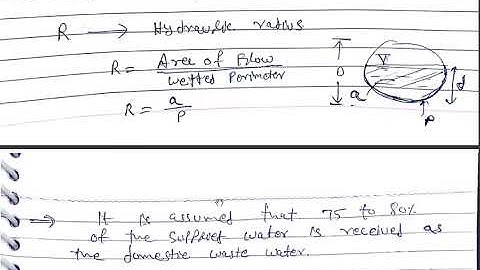 R → Hydraulic radius
R = Area of Flow / wetted Perimeter
R = a / P
D
V
d
a
P
⇒ It is assumed that 75 to 80%
of the supplied water is received as
the domestic waste water.